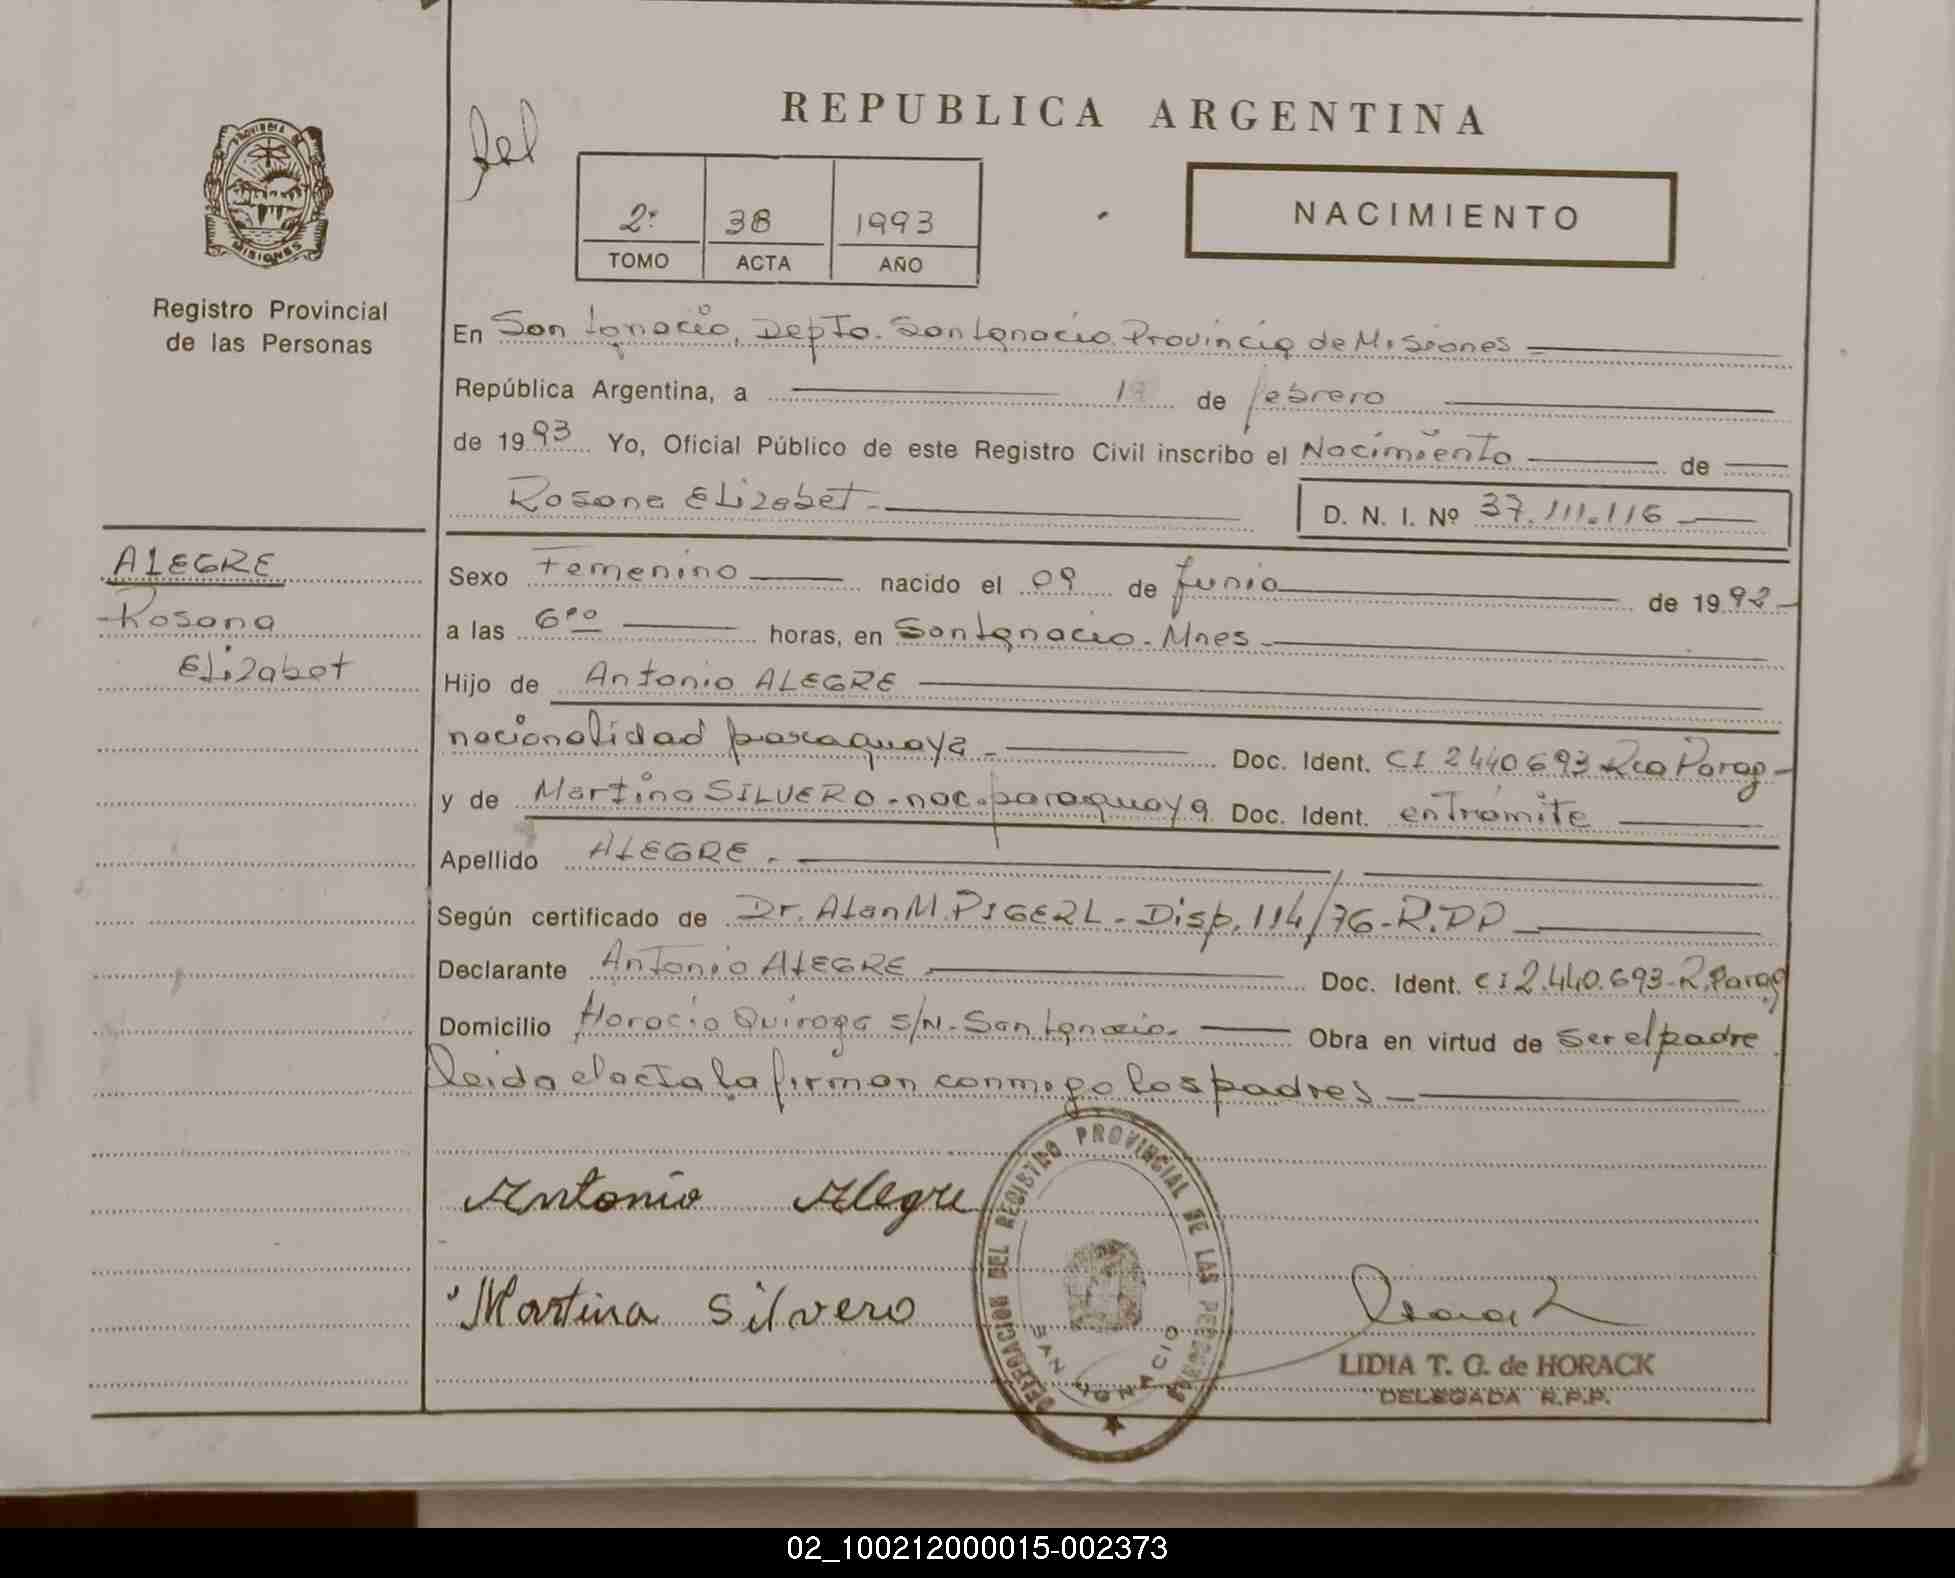 REPUBLICA ARGENTINA
PROVINCIA DE MISIONES
Registro Provincial
de las Personas
2º 38 1993
TOMO ACTA AÑO
NACIMIENTO
En San Ignacio, Depto. San Ignacio Provincia de Misiones
República Argentina, a de febrero
de 1993 Yo, Oficial Público de este Registro Civil inscribo el Nacimiento de
Rosana Elizabet - D. N. I. Nº 37.111.116
ALEGRE
Rosana
Elizabet
Sexo Femenino nacido el 09 de Junio de 1992
a las 6⁰⁰ horas, en San Ignacio - Mnes -
Hijo de Antonio ALEGRE
nacionalidad paraguaya - Doc. Ident. CI 2440693 Rca Parag -
y de Martina SILVERO - nac. paraguaya Doc. Ident. en Trámite
Apellido ALEGRE -
Según certificado de Dr. Alan M. PIGERL - Disp. 114/76 - R.PP
Declarante Antonio ALEGRE Doc. Ident. CI 2.440.693 - R. Parag
Domicilio Horacio Quiroga S/N - San Ignacio - Obra en virtud de ser el padre
leida el acta la firman conmigo los padres -
Antonio Alegre
Martina Silvero
DELEGACION DEL REGISTRO PROVINCIAL DE LAS PERSONAS
SAN IGNACIO
LIDIA T. G. de HORACK
DELEGADA R.P.P.
02_100212000015-002373